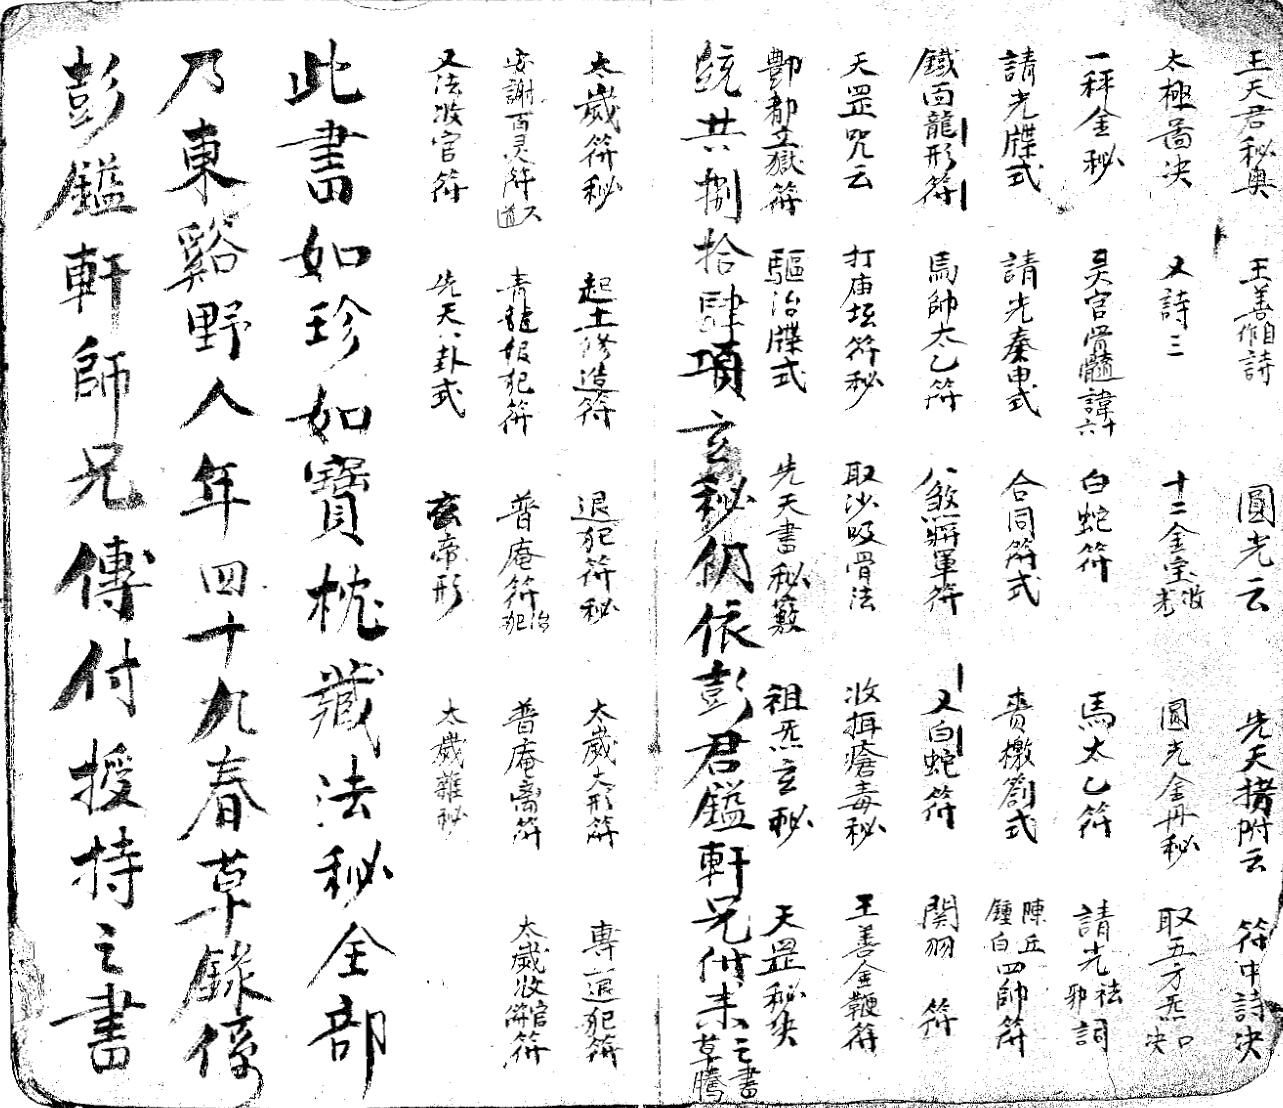 王天君秘奧 王善自作詩 圓光云 先天撍附云 符中詩决
太極啚决 又詩三 十二金宝 圓光金丹秘 取五方炁口决
一秤金秘 吴官骨髓諱六十 白蛇符 馬太乙符 請光祛邪詞
請光牒式 請光奏申式 合同符式 賚檄劄式 陳丘鍾白四帥符
鐵面龍形符 馬帥太乙符 八煞將軍符 又白蛇符 関羽符
天罡咒云 打庙坛符秘 取沙吸骨法 收捐瘡毒秘 王善金鞭符
酆都立獄符 驅治牒式 先天書秘藪 祖炁玄秘 天罡秘决
統共捌拾肆項玄秘仍依彭君鎰軒兄付来之書草騰
太歲符秘 起土修造符 退犯符秘 太歲大形符 專退犯符
安謝百灵符 青龍報犯符 普庵符治犯 普庵离符 太歲收官符
又法收官符 先天八卦式 玄帝形 太歲雜秘
此書如珍如寶枕藏法秘全部
乃東谿野人年四十九春草錄傳
彭鎰軒師兄傳付授持之書